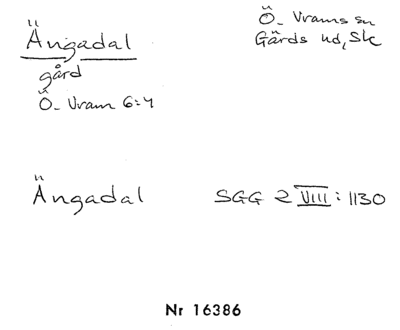 Ängadal
gård
Ö. Vram 6:4
Ö. Vrams sn
Gärds hd, Sk
Ängadal
SGG 2 VIII : 1130
Nr 16386